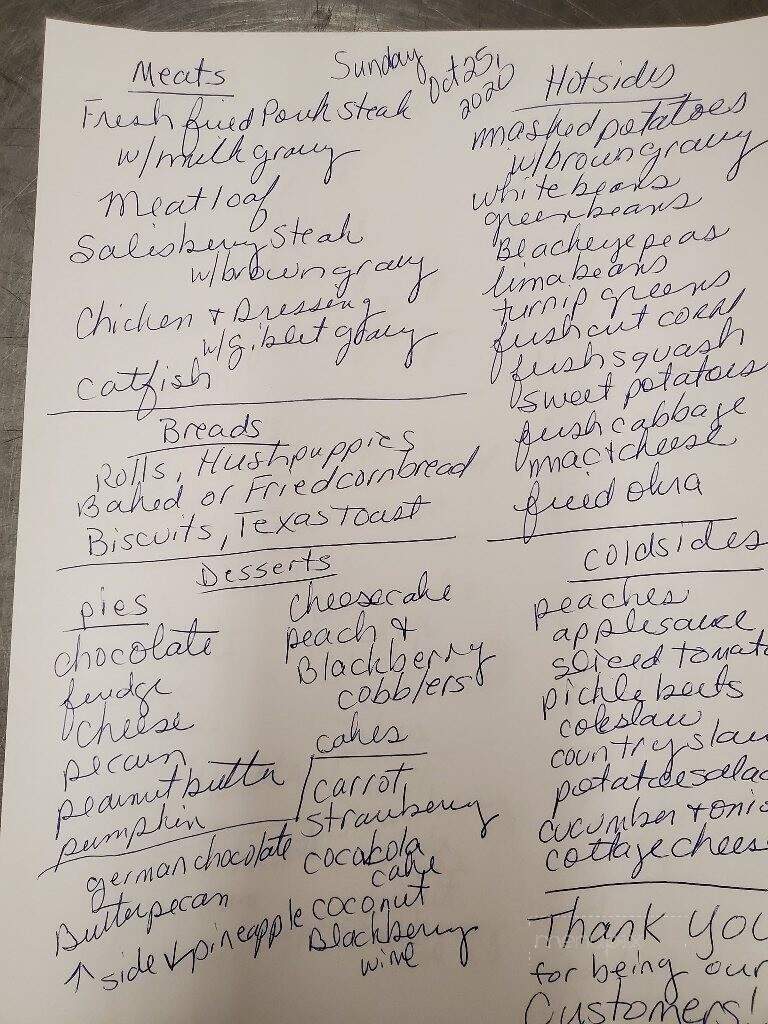 Sunday
Oct 25,
2020
Meats
Fresh fried Pork Steak
w/milk gravy
Meatloaf
Salisberry Steak
w/brown gravy
Chicken & Dressing
w/giblet gravy
Catfish
Breads
Rolls, Hushpuppies
Baked or Fried cornbread
Biscuits, Texas Toast
Desserts
pies
chocolate
fudge
cheese
pecan
peanut butter
pumpkin
cheesecake
peach &
Blackberry
cobblers
cakes
carrot,
Strawberry
german chocolate
cocakola
cake
Butter pecan
coconut
↑ side ↓ pineapple
Blackberry
wine
Hotsides
mashed potatoes
w/brown gravy
white beans
green beans
Blackeye peas
lima beans
turnip greens
fresh cut corn
fresh squash
sweet potatoes
fresh cabbage
mac & cheese
fried okra
Coldsides
peaches
applesauce
sliced tomato
pickle beets
coleslaw
country slaw
potatoe salad
cucumber & onio
cottage chees
Thank You
for being our
Customers!